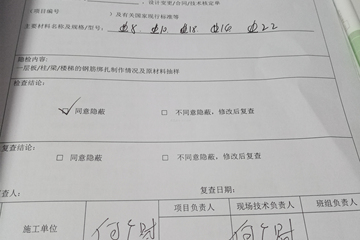 、设计变更/合同/技术核定单
（项目编号 ）及有关国家现行标准等
主要材料名称及规格/型号： ф8、ф10、ф18、ф16、ф22
隐检内容：
一层板/柱/梁/楼梯的钢筋绑扎制作情况及原材料抽样
检查结论：
☑ 同意隐蔽 □ 不同意隐蔽，修改后复查
复查结论：
□ 同意隐蔽 □ 不同意隐蔽，修改后复查
查人： 复查日期：
施工单位 项目负责人 现场技术负责人 班组负责人